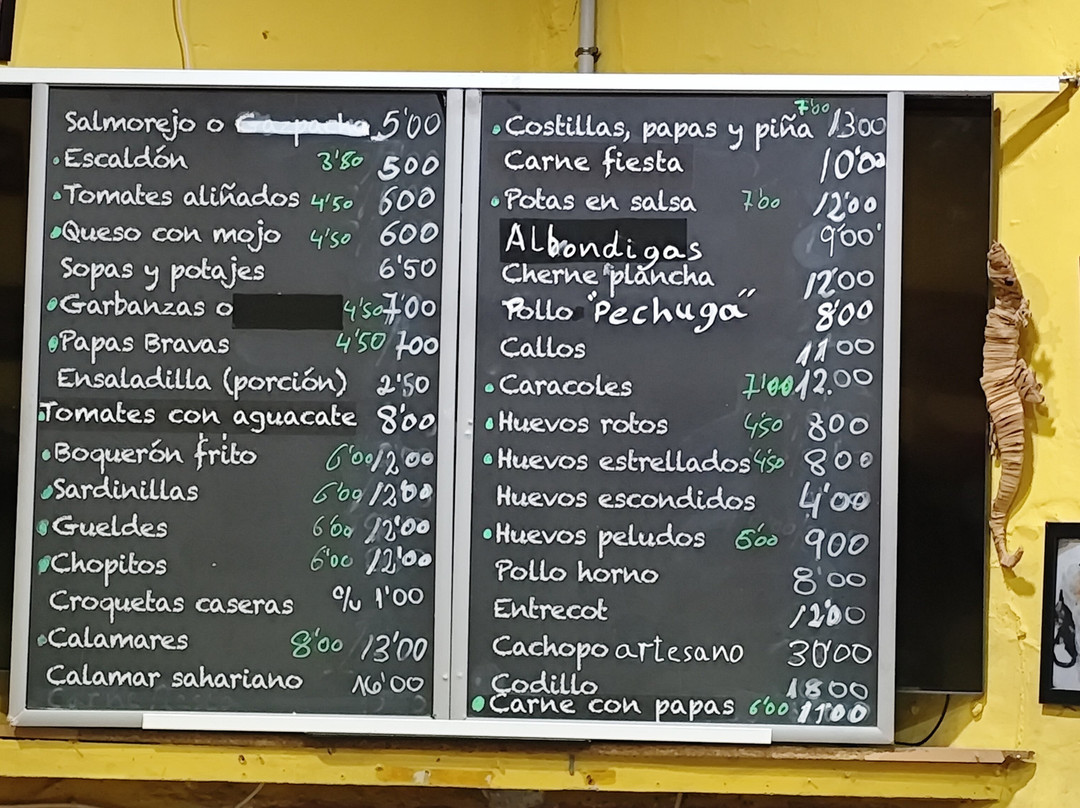 Salmorejo o Gazpacho 5'00
Escaldón 3'80 500
Tomates aliñados 4'50 600
Queso con mojo 4'50 600
Sopas y potajes 6'50
Garbanzas o 4'50 7'00
Papas Bravas 4'50 700
Ensaladilla (porción) 2'50
Tomates con aguacate 8'00
Boquerón frito 6'00 12'00
Sardinillas 6'00 12'00
Gueldes 6'00 12'00
Chopitos 6'00 12'00
Croquetas caseras c/u 1'00
Calamares 8'00 13'00
Calamar sahariano 16'00
Costillas, papas y piña 7'00 13'00
Carne fiesta 10'00
Potas en salsa 7'00 12'00
Albondigas 9'00
Cherne plancha 12'00
Pollo "Pechuga" 8'00
Callos 11'00
Caracoles 7'00 12.00
Huevos rotos 4'50 800
Huevos estrellados 4'50 800
Huevos escondidos 4'00
Huevos peludos 5'00 900
Pollo horno 8'00
Entrecot 12'00
Cachopo artesano 30'00
Codillo 1800
Carne con papas 6'00 11'00